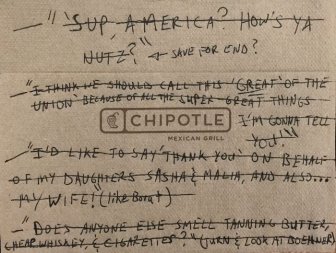 — "'SUP, AMERICA? HOW'S YA
NUTZ?" ← SAVE FOR END?
— "I THINK WE SHOULD CALL THIS 'GREAT' OF THE
UNION' BECAUSE OF ALL THE SUPER GREAT THINGS
I'M GONNA TELL
YOU!"
CHIPOTLE
MEXICAN GRILL
— "I'D LIKE TO SAY 'THANK YOU' ON BEHALF
OF MY DAUGHTERS SASHA & MALIA, AND ALSO...
MY WIFE!" (like Borat)
— "DOES ANYONE ELSE SMELL TANNING BUTTER,
CHEAP WHISKEY, & CIGARETTES?" (TURN & LOOK AT BOEHNER)